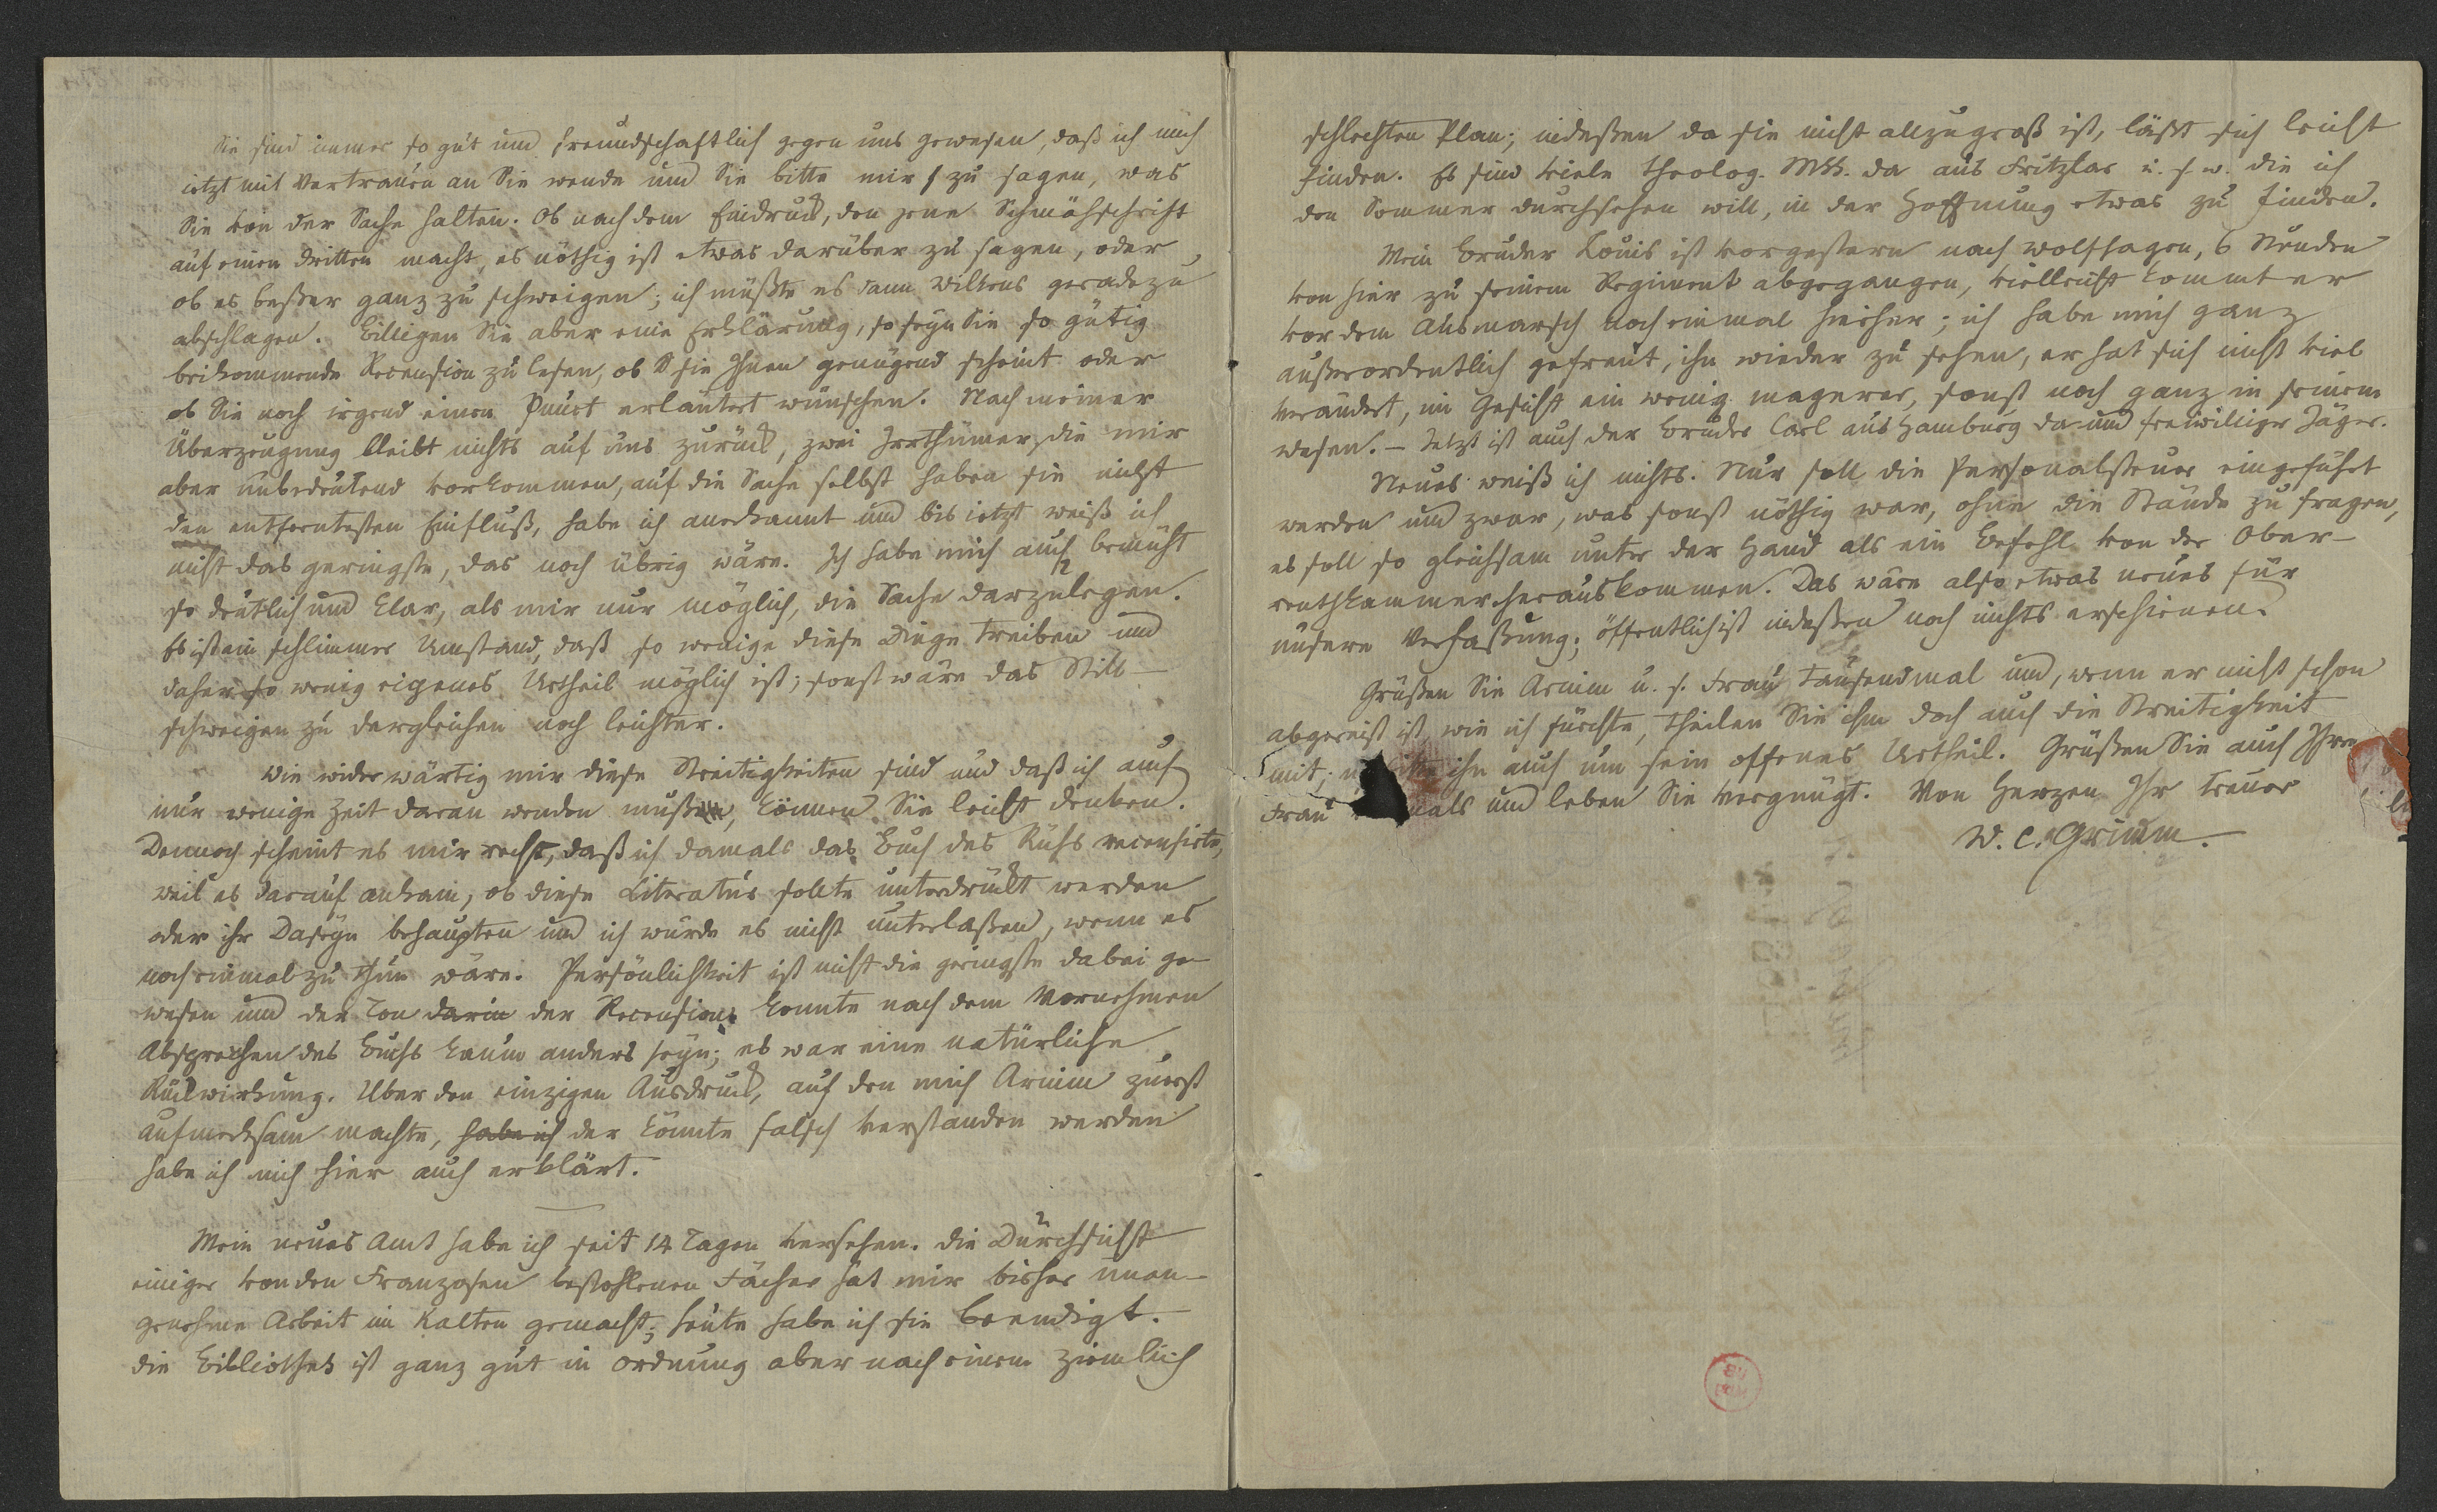 Sie sind immer so gut und freundschaftlich gegen uns gewesen, daß ich mich
jetzt mit Vertrauen an Sie wende und Sie bitte mir zu sagen, was
Sie von der Sache halten. Ob nach dem Eindruck, den jene Schmähschrift
auf einen dritten macht, es nöthig ist etwas darüber zu sagen, oder
ob es beßer ganz zu schweigen; ich müßte es dann Wilkens geradezu
abschlagen. Billigen Sie aber eine Erklärung, so seyn Sie so gütig
beikommende Recension zu lesen, ob sie Ihnen genügend scheint oder
ob Sie noch irgend einen Punct erläutert wünschen. Nach meiner
Überzeugung bleibt nichts auf uns zurück, zwei Irrthümer, die mir
aber unbedeutend vorkommen, auf die Sache selbst haben sie nicht
den entferntesten Einfluß, habe ich anerkannt und bis jetzt weiß ich
nicht das geringste, das noch übrig wäre. Ich habe mich auch bemüht
so deutlich und klar, als mir nur möglich, die Sache darzulegen.
Es ist ein schlimmer Umstand, daß so wenige diese Dinge treiben und
daher so wenig eigenes Urtheil möglich ist; sonst wäre das Still-
schweigen zu dergleichen noch leichter.
Wie widerwärtig mir diese Streitigkeiten sind und daß ich auch
nur wenige Zeit daran wenden mußte, können Sie leicht denken.
Dennoch scheint es mir recht, daß ich damals das Buch des Rühs recensirte,
weil es darauf ankam, ob diese Literatur sollte unterdrückt werden
oder ihr Daseyn behaupten und ich würde es nicht unterlaßen, wenn es
noch einmal zu thun wäre. Persönlichkeit ist nicht die geringste dabei ge-
wesen und der Ton darin der Recension konnte nach dem Vornehmen
Absprechen des Buchs kaum anders seyn; es war eine natürliche
Rückwirkung. Über den einzigen Ausdruck, auf den mich Arnim zuerst
aufmerksam machte, habe ich der könnte falsch verstanden werden
habe ich mich hier auch erklärt.
Mein neues Amt habe ich seit 14 Tagen versehen. Die Durchsicht
einiger von den Franzosen bestohlenen Fächer hat mir bisher unan-
genehme Arbeit im Kalten gemacht; heute habe ich sie beendigt.
die Bibliothek ist ganz gut in Ordnung aber nach einem ziemlich
schlechten Plan; indeßen da sie nicht allzugroß ist, läßt sich leicht
finden. Es sind viele theolog. Mss. da aus Fritzlar u. s. w. die ich
den Sommer durchsehen will, in der Hoffnung etwas zu finden.
Mein Bruder Louis ist vorgestern nach Wolfhagen, 6 Stunden
von hier zu seinem Regiment abgegangen, vielleicht kommt er
vor dem Ausmarsch noch einmal hierher; ich habe mich ganz
außerordentlich gefreut, ihn wieder zu sehen, er hat sich nicht viel
verändert, im Gesicht ein wenig magerer, sonst noch ganz in seinem
Wesen. – Jetzt ist auch der Bruder Carl aus Hamburg da und freiwilliger Jäger.
Neues weiß ich nichts. Nur soll die Personalsteuer eingeführt
werden und zwar, was sonst nöthig war, ohne die Stände zu fragen,
es soll so gleichsam unter der Hand als ein Befehl von der Ober-
rentkammer herauskommen. Das wäre also etwas neues für
unsere Verfaßung; öffentlich ist indeßen noch nichts erschienen.
Grüßen Sie Arnim u. s. Frau tausendmal und, wenn er nicht schon
abgereist ist, wie ich fürchte, theilen Sie ihm doch auch die Streitigkeit
mit; ihn auch um sein offenes Urtheil. Grüßen Sie auch Ihre
Frau und leben Sie vergnügt. Von Herzen Ihr treuer
W. C. Grimm.